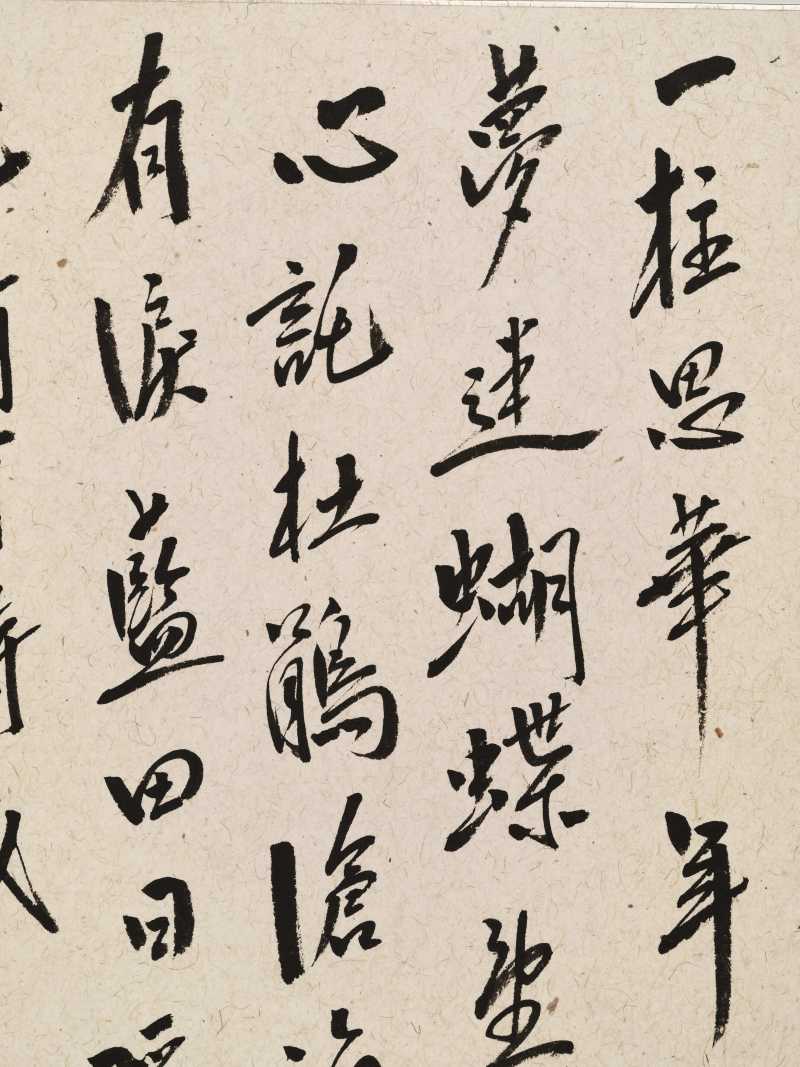 一柱思華年
夢迷蝴蝶望
心託杜鵑滄
有淚藍田日